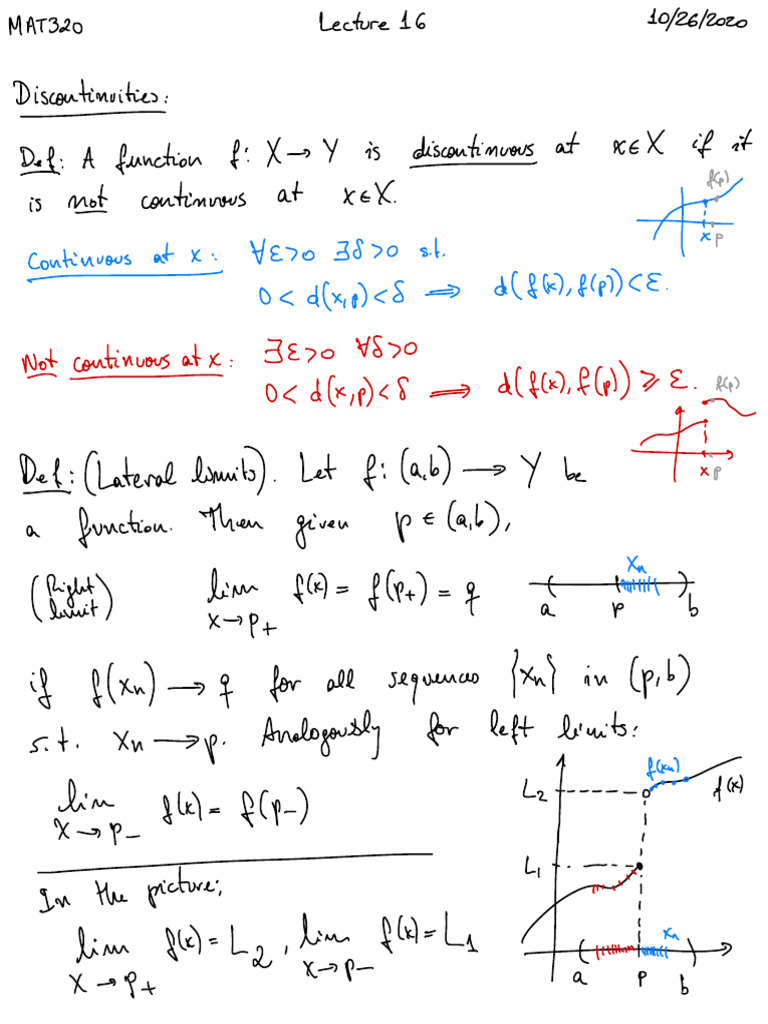 MAT320 Lecture 16 10/26/2020
Discontinuities:
Def: A function f: X → Y is discontinuous at x ∈ X if it
is not continuous at x ∈ X.
f(p)
x p
Continuous at x: ∀ε>0 ∃δ>0 s.t.
0 < d(x,p) < δ ⟹ d(f(x), f(p)) < ε.
Not continuous at x: ∃ε>0 ∀δ>0
0 < d(x,p) < δ ⟹ d(f(x), f(p)) ⩾ ε.
f(p)
x p
Def: (Lateral limits). Let f: (a,b) ⟶ Y be
a function. Then given p ∈ (a,b),
(Right limit) lim x→p+ f(x) = f(p+) = q
xn
a p b
if f(xn) ⟶ q for all sequences {xn} in (p,b)
s.t. xn ⟶ p. Analogously for left limits:
lim x→p− f(x) = f(p−)
In the picture;
lim x→p+ f(x) = L2, lim x→p− f(x) = L1
L2 f(xn) f(x)
L1
xn
a p b